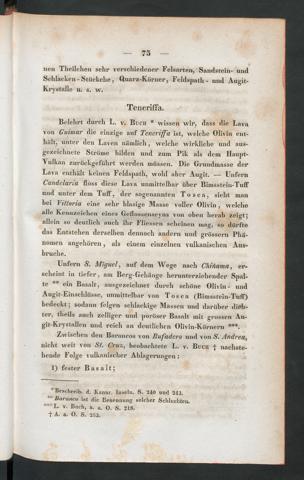 — 75 —
nen Theilchen sehr verschiedener Felsarten, Sandstein- und
Schlacken-Stückchen, Quarz-Körner, Feldspath- und Augit-
Krystalle u. s. w.
Teneriffa.
Belehrt durch L. v. BUCH * wissen wir, dass die Lava
von Guimar die einzige auf Teneriffa ist, welche Olivin ent-
hält, unter den Laven nämlich, welche wirkliche und aus-
gezeichnete Ströme bilden und zum Pik als dem Haupt-
Vulkan zurückgeführt werden müssen. Die Grundmasse der
Lava enthält keinen Feldspath, wohl aber Augit. — Unfern
Candelaria floss diese Lava unmittelbar über Bimsstein-Tuff
und unter dem Tuff, der sogenannten Tosca, sieht man
bei Vittoria eine sehr blasige Masse voller Olivin, welche
alle Kennzeichen eines Geflossenseyns von oben herab zeigt;
allein so deutlich auch ihr Fliessen scheinen mag, so dürfte
das Entstehen derselben dennoch andern und grössern Phä-
nomen angehören, als einem einzelnen vulkanischen Aus-
bruche.
Unfern S. Miguel, auf dem Wege nach Chinama, er-
scheint in tiefer, am Berg-Gehänge herunterziehender Spal-
te ** ein Basalt, ausgezeichnet durch schöne Olivin- und
Augit-Einschlüsse, unmittelbar von Tosca (Bimsstein-Tuff)
bedeckt; sodann folgen schlackige Massen und darüber dich-
ter, theils auch zelliger und poröser Basalt mit grossen Au-
git-Krystallen und reich an deutlichen Olivin-Körnern ***.
Zwischen den Barancos von Bufadero und von S. Andrea,
nicht weit von St. Cruz, beobachtete L. v. BUCH † nachste-
hende Folge vulkanischer Ablagerungen:
1) fester Basalt;
* Beschreib. d. Kanar. Inseln. S. 240 und 243.
** Baranco ist die Benennung solcher Schluchten.
*** L. v. Buch, a. a. O. S. 218.
† A. a. O. S. 253.